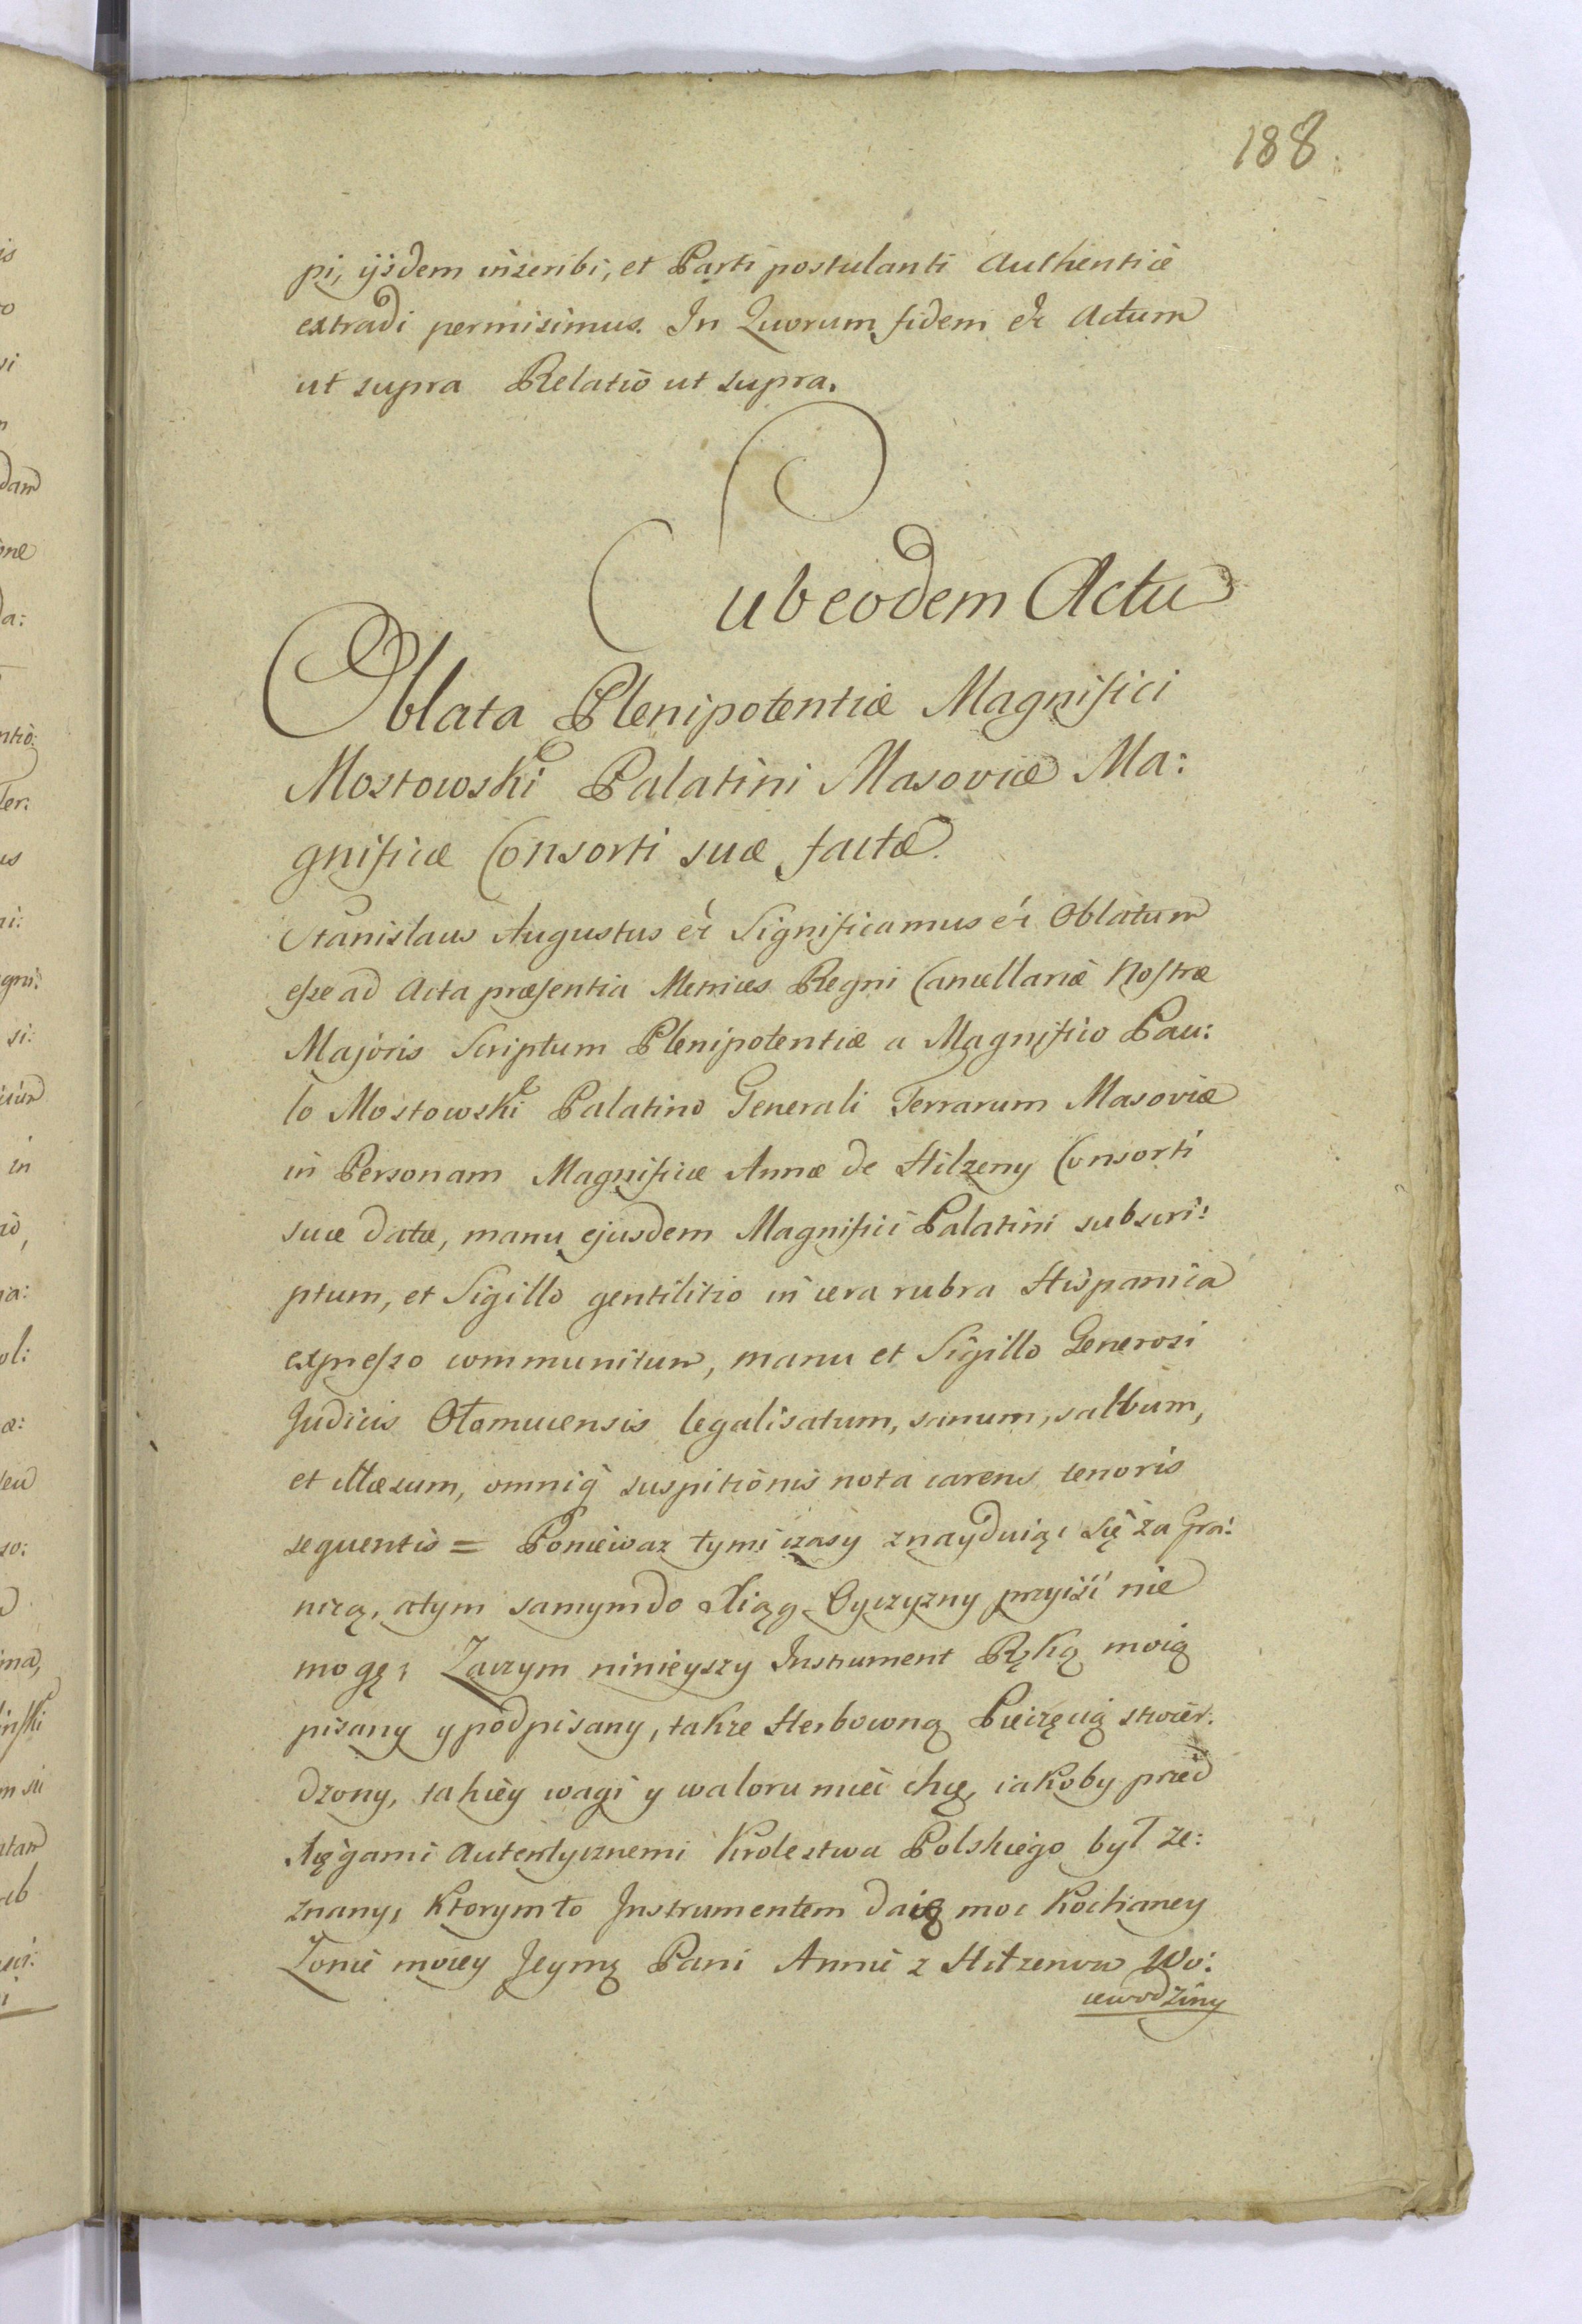 188.
pi, ijsdem inscribi, et Parti postulanti Authenticè
extradi permisimus. In Quorum fidem &c Actum
ut supra Relatio ut supra.
Sub eodem Actu
Oblata Plenipotentiæ Magnifici
Mostowski Palatini Masoviæ Ma:
gnificæ Consorti suæ factæ.
Stanislaus Augustus &c Significamus &c Oblatum
eſse ad Acta præsentia Metrices Regni Cancellariæ Noſtræ
Majoris Scriptum Plenipotentiæ a Magnifico Pau:
lo Mostowski Palatino Generali Terrarum Masoviæ
in Personam Magnificæ Annæ de Hilzeny Consorti
suæ datæ, manu ejusdem Magnifici Palatini subscri:
ptum, et Sigillo gentilitio in cera rubra Hispanica
expreſso communitum, manu et Sigillo Generosi
Judicis Olomucensis legalisatum, sanum, salvum,
et illæsum, omniq suspitionis nota carens tenoris
sequentis = Ponieważ tymi czasy znayduiąc się za Gra:
nicą, atym samym do Xiąg Oyczyzny przyiść nie
mogę; Zaczym ninieyszy Instrument Ręką moią
pisany y podpisany, także Herbowną Pieczęcią stwier:
dzony, takiey wagi y waloru mieć chcę, iakoby przed
Xięgami Autentycznemi Krolestwa Polskiego był ze:
znany, Ktorym to Instrumentem daię moc Kochaney
Zonie moiey Jeymę Pani Annie z Hilzenow Wo:
iewodziny